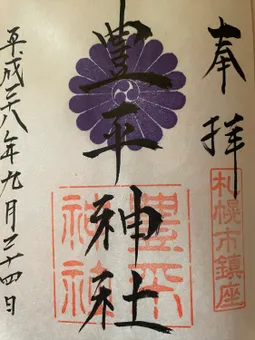 奉拝
札幌市鎮座
豊平神社
豊平神社
平成二十八年九月二十四日